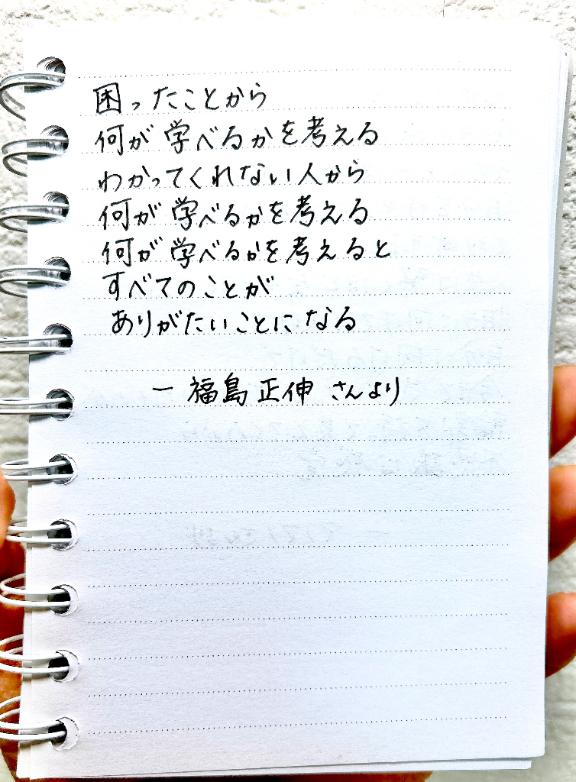 困ったことから
何が学べるかを考える
わかってくれない人から
何が学べるかを考える
何が学べるかを考えると
すべてのことが
ありがたいことになる
ー福島正伸さんより